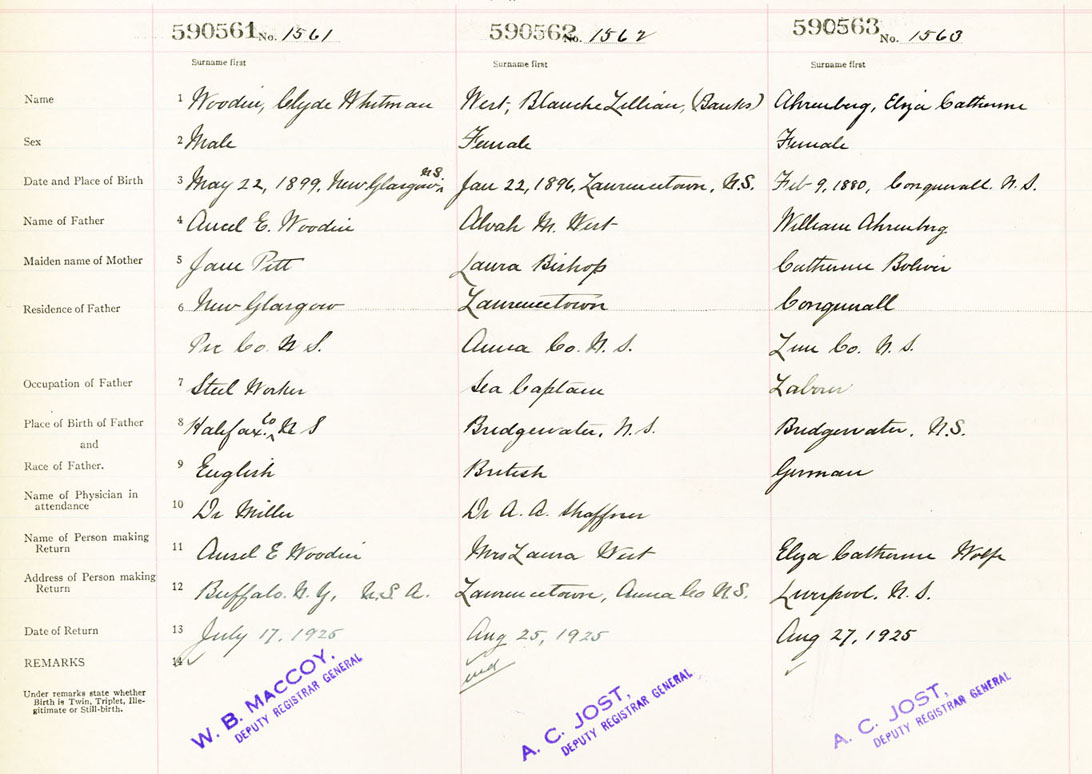 590561 No. 1561 590562 No. 1562 590563 No. 1563
Surname first Surname first Surname first
Name 1 Woodin, Clyde Whitman West, Blanche Lillian, (Banks) Ahrenberg, Eliza Catherine
Sex 2 Male Female Female
Date and Place of Birth 3 May 22, 1899, New Glasgow N.S. Jan 22, 1896, Lawrencetown, N.S. Feb 9, 1880, Conquerall. N.S.
Name of Father 4 Ansel E. Woodin Alvah M. West William Ahrenberg
Maiden name of Mother 5 Jane Pitt Laura Bishop Catherine Boliver
Residence of Father 6 New Glasgow Lawrencetown Conquerall
Pic Co. N S. Anna Co. N. S. Lun Co. N. S.
Occupation of Father 7 Steel Worker Sea Captain Labour
Place of Birth of Father 8 Halifax. Co N S Bridgewater, N.S. Bridgewater, N.S.
and
Race of Father. 9 English British German
Name of Physician in
attendance 10 Dr Miller Dr A. A. Shaffner
Name of Person making
Return 11 Ansel E Woodin Mrs Laura West Eliza Catherine Wolfe
Address of Person making
Return 12 Buffalo. N.Y, U.S.A. Lawrencetown, Anna Co N.S. Liverpool. N.S.
Date of Return 13 July 17, 1925 Aug 25, 1925 Aug 27, 1925
REMARKS 14
Under remarks state whether
Birth is Twin, Triplet, Ille-
gitimate or Still-birth.
W. B. MACCOY, A. C. JOST, A. C. JOST,
DEPUTY REGISTRAR GENERAL DEPUTY REGISTRAR GENERAL DEPUTY REGISTRAR GENERAL